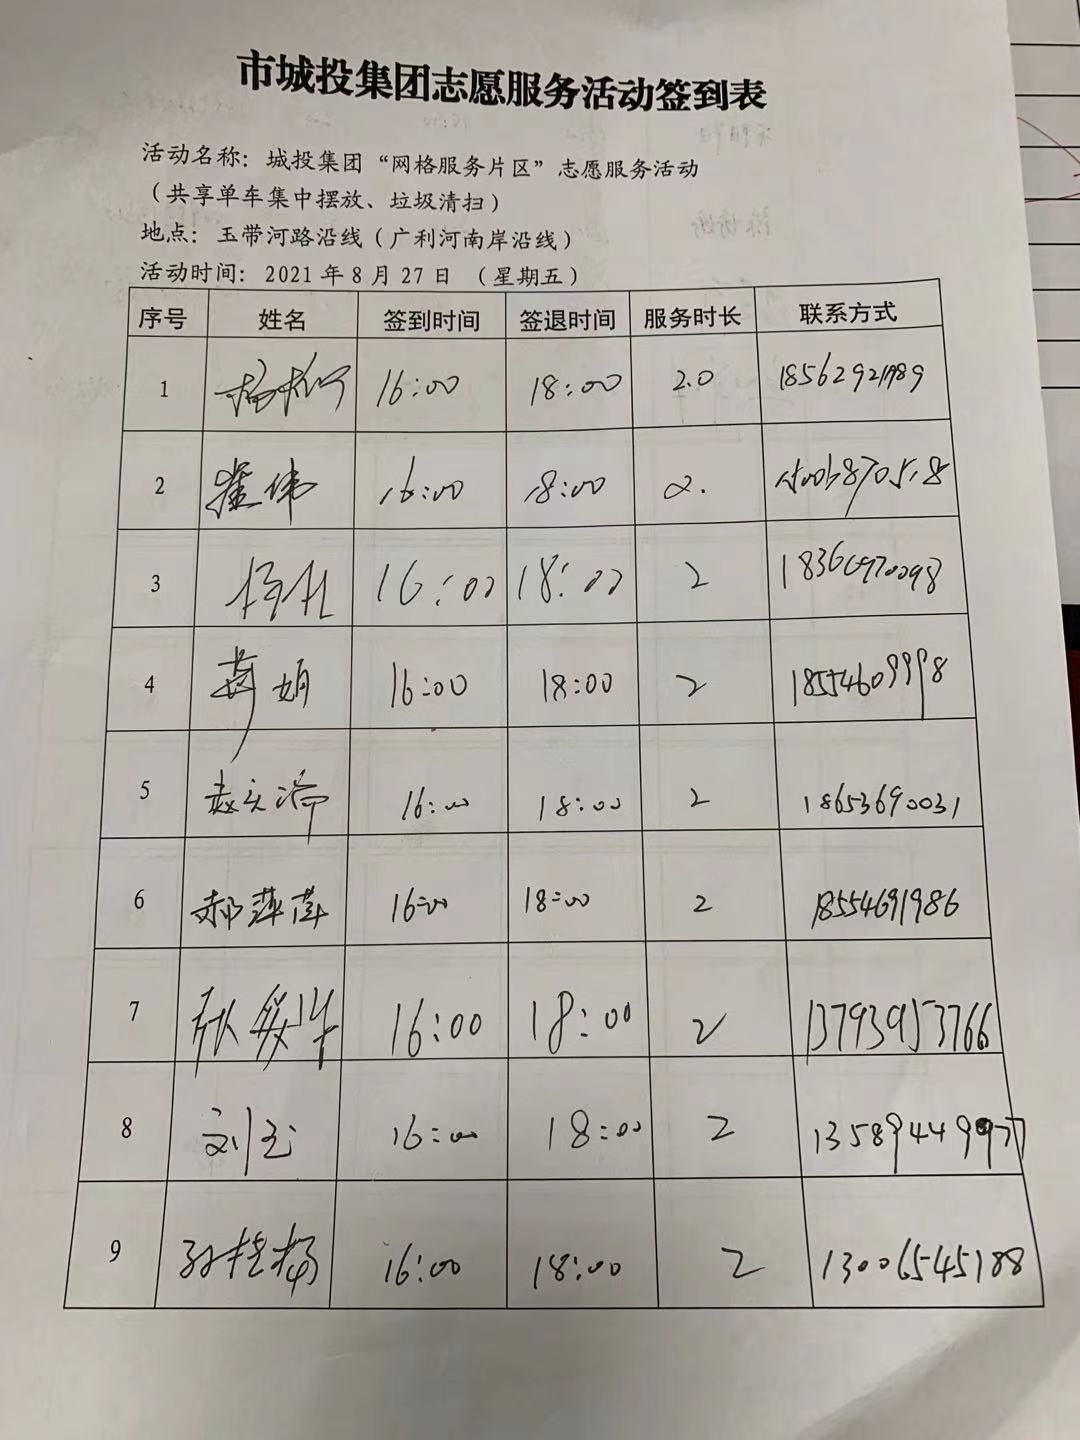 市城投集团志愿服务活动签到表
活动名称：城投集团“网格服务片区”志愿服务活动
（共享单车集中摆放、垃圾清扫）
地点：玉带河路沿线（广利河南岸沿线）
活动时间：2021年8月27日 （星期五）
序号 姓名 签到时间 签退时间 服务时长 联系方式
1 16:00 18:00 2.0
2 崔伟 16:00 18:00 2.
3 16:00 18:00 2
4 娟 16:00 18:00 2 18554609998
5 赵文 16:00 18:00 2 18653690031
6 郝萍萍 16:00 18:00 2 18554691986
7 16:00 18:00 2 13793953766
8 刘玉 16:00 18:00 2
9 孙 16:00 18:00 2 13006545188